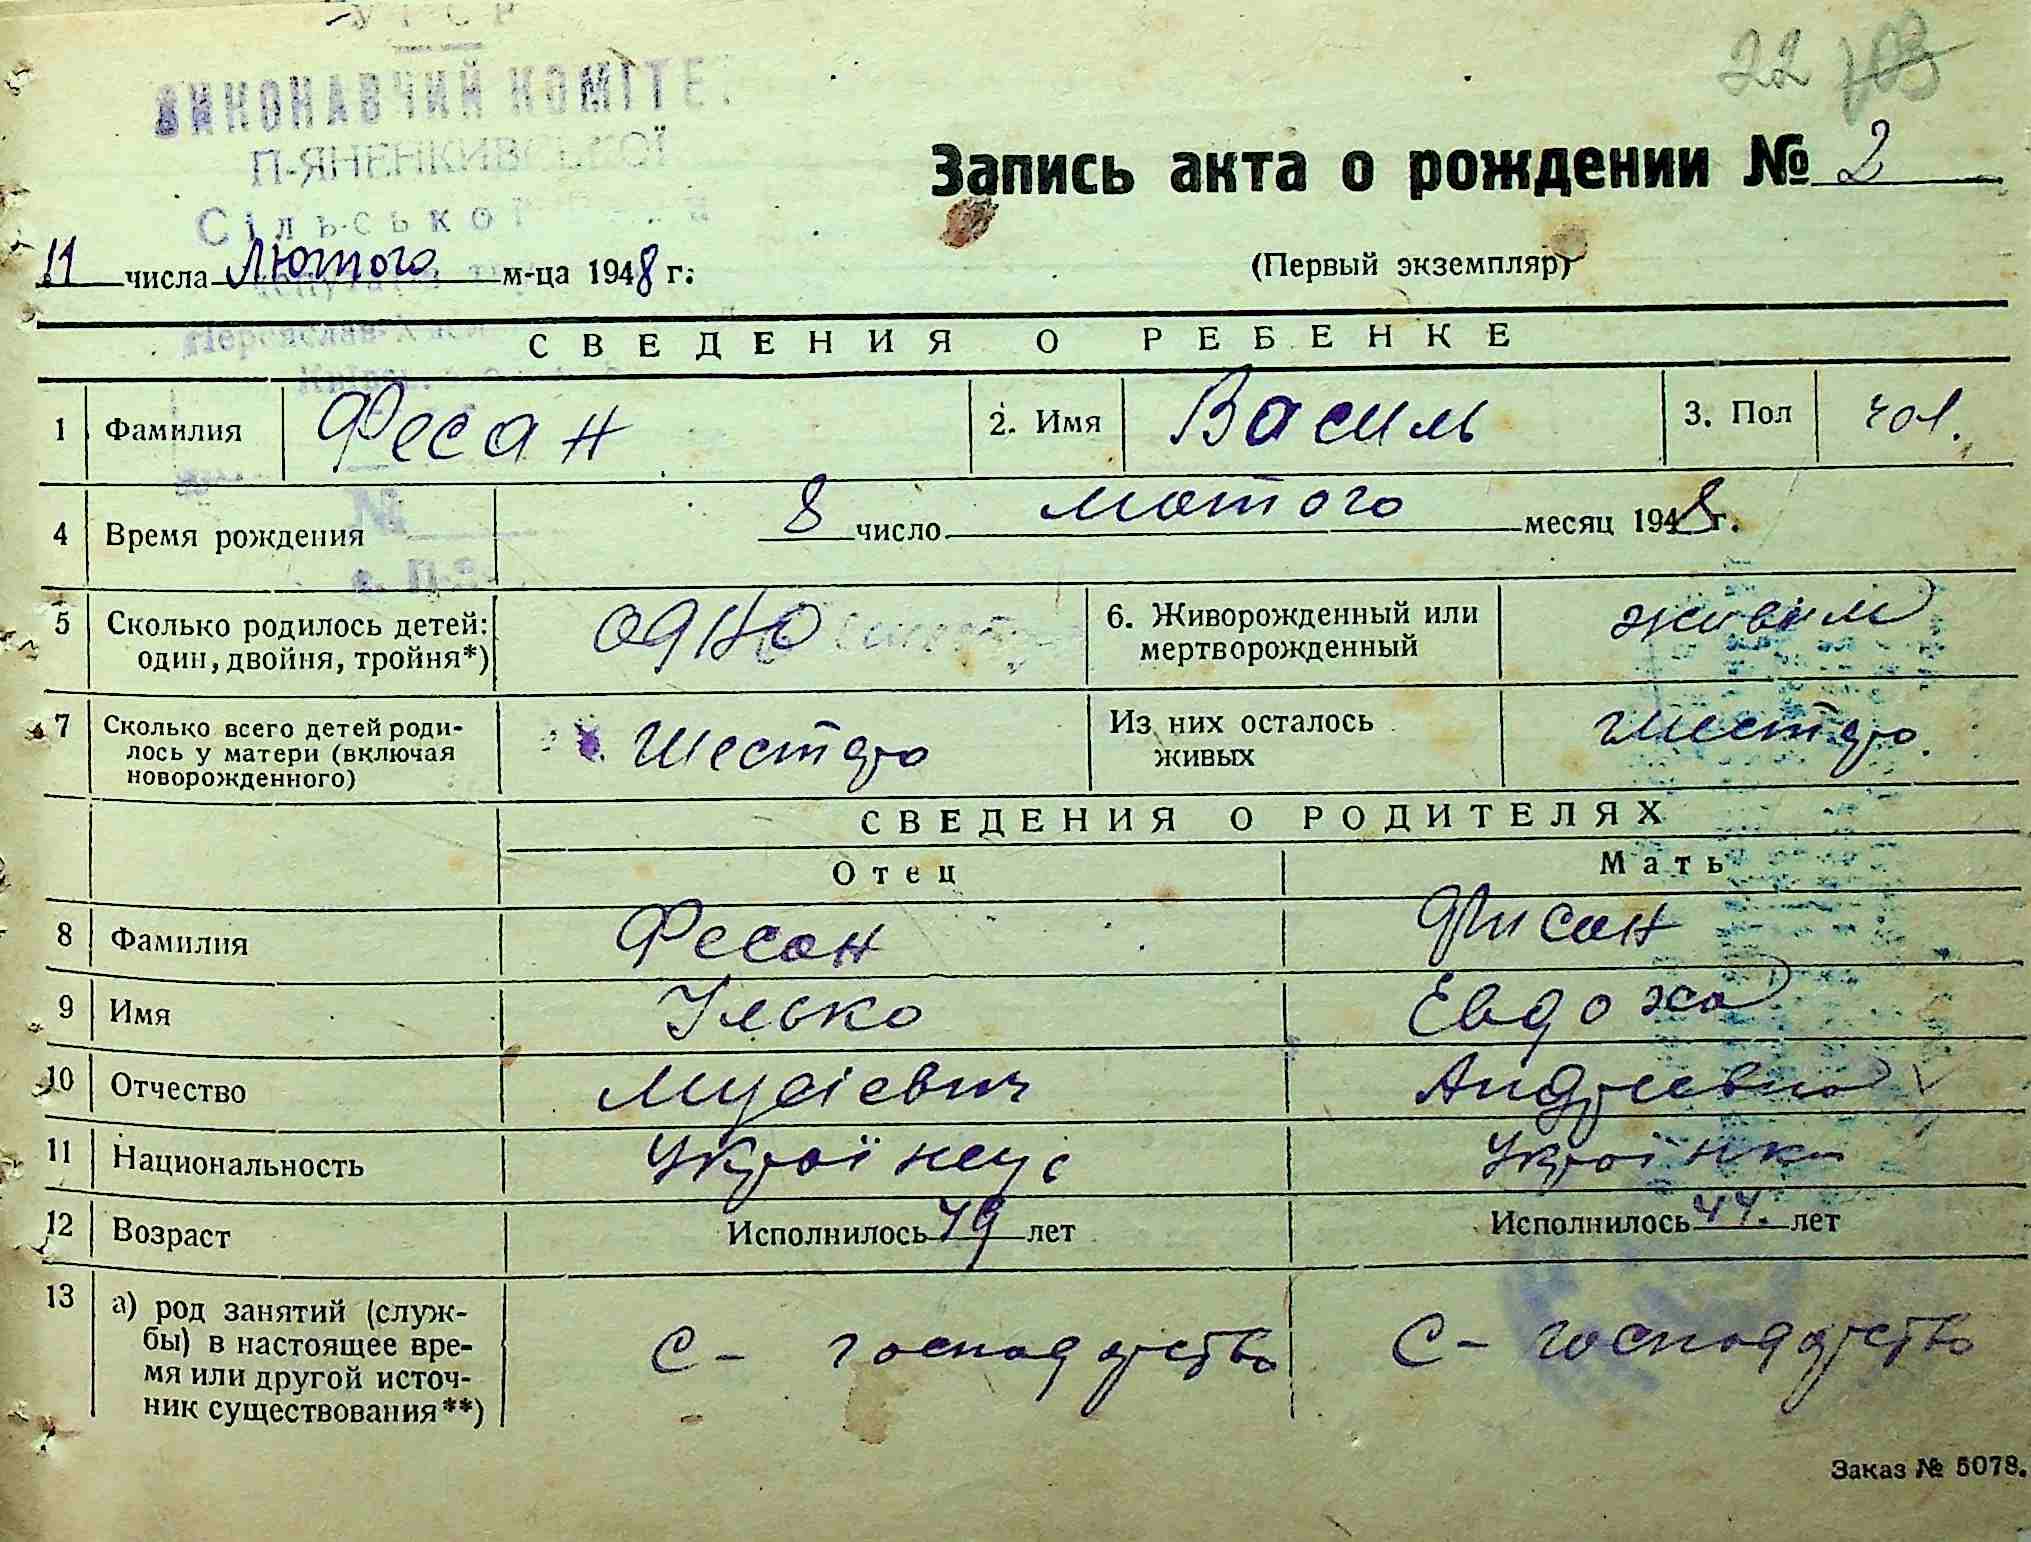 УРСР
ВИКОНАВЧИЙ КОМІТЕ
П-ЯНЕНКИВСЬКОЇ
Сільської
22 103
Запись акта о рождении № 2
(Первый экземпляр)
11 числа Лютого м-ца 1948 г.
СВЕДЕНИЯ О РЕБЕНКЕ
1 Фамилия Фесан 2. Имя Василь 3. Пол чол.
4 Время рождения 8 число лютого месяц 1948 г.
№
5 Сколько родилось детей: один, двойня, тройня*) одно 6. Живорожденный или мертворожденный живим
7 Сколько всего детей родилось у матери (включая новорожденного) Шестеро Из них осталось живых шестеро.
СВЕДЕНИЯ О РОДИТЕЛЯХ
Отец Мать
8 Фамилия Фесан Фисан
9 Имя Ілько Евдоха
10 Отчество Мусієвич Андреевна
11 Национальность Українец Українка
12 Возраст Исполнилось 49 лет Исполнилось 44. лет
13 а) род занятий (службы) в настоящее время или другой источник существования**) С - господарство С - господарство
Заказ № 5078.